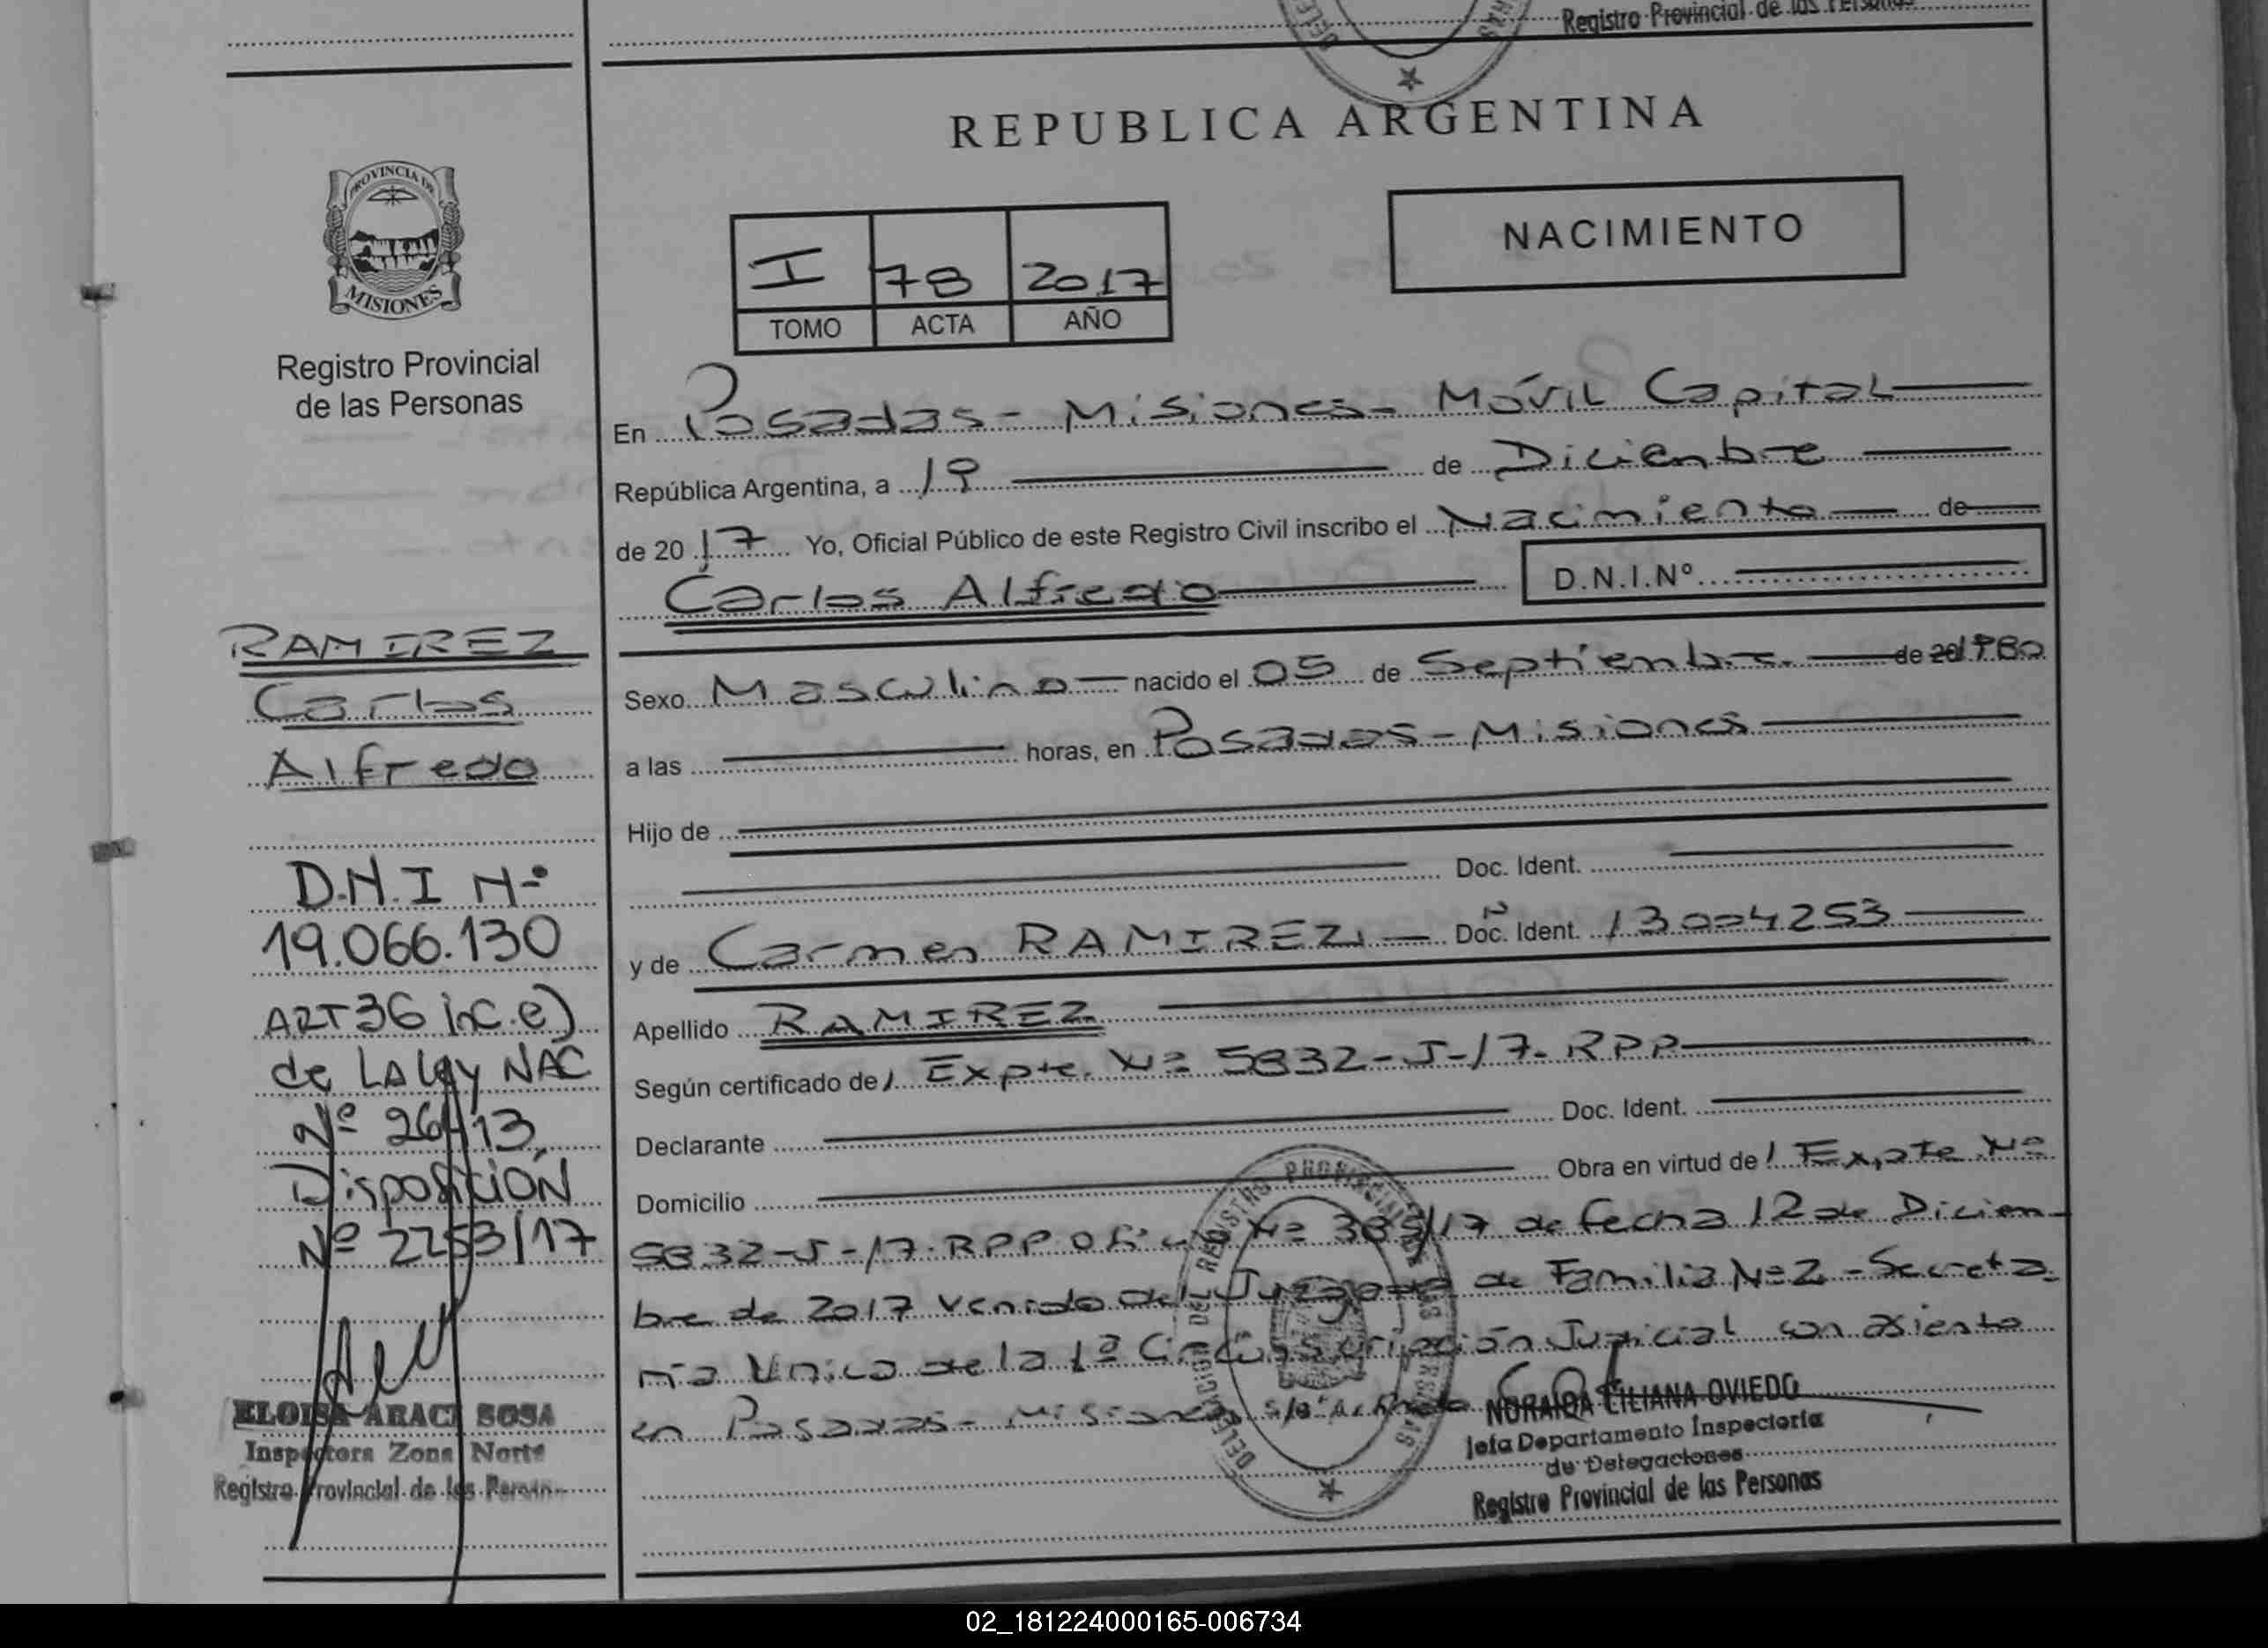 Registro Provincial de las Personas
REPUBLICA ARGENTINA
PROVINCIA DE
MISIONES
Registro Provincial
de las Personas
I 78 2017
TOMO ACTA AÑO
NACIMIENTO
En Posadas - Misiones - Móvil Capital
República Argentina, a 19 de Diciembre
de 2017 Yo, Oficial Público de este Registro Civil inscribo el Nacimiento de
Carlos Alfredo D.N.I.Nº
Sexo Masculino nacido el 05 de Septiembre de 1980
a las horas, en Posadas - Misiones
Hijo de
Doc. Ident.
y de Carmen RAMIREZ Doc. Ident. 13004253
Apellido RAMIREZ
Según certificado de Expte. Nº 5832-J-17-RPP
Declarante Doc. Ident.
Domicilio Obra en virtud de Expte Nº
5832-J-17-RPP Oficio Nº /17 de fecha 12 de Diciem-
bre de 2017 venido del Juzgado de Familia Nº 2 - Secreta-
ria Unica de la 1ª Circunscripción Judicial con asiento
en Posadas - Misiones
NORAIDA LILIANA OVIEDO
Jefa Departamento Inspectoría
de Delegaciones
Registro Provincial de las Personas
RAMIREZ
Carlos
Alfredo
D.N.I Nº
19.066.130
ART 36 inc.e)
de LA ley NAC
Nº 26413,
Disposición
Nº 2253/17
ELOISA ARACI SOSA
Inspectora Zona Norte
Registro Provincial de las Person
DELEGACION DEL REGISTRO PROVINCIAL DE LAS PERSONAS
02_181224000165-006734